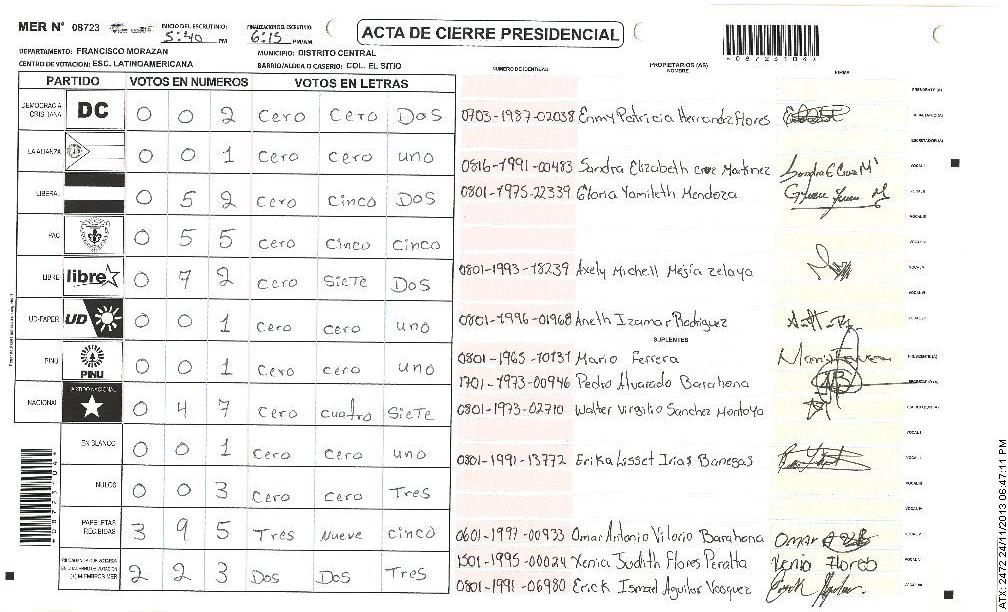 MER N° 08723 INICIO DEL ESCRUTINIO 5:40 PM FINALIZACION DEL ESCRUTINIO 6:15 PM/AM
ACTA DE CIERRE PRESIDENCIAL
*08723104*
DEPARTAMENTO: FRANCISCO MORAZAN MUNICIPIO: DISTRITO CENTRAL
CENTRO DE VOTACION: ESC. LATINOAMERICANA BARRIO/ALDEA O CASERIO: COL. EL SITIO
NUMERO DE IDENTIDAD PROPIETARIOS (AS) NOMBRE FIRMA
PARTIDO VOTOS EN NUMEROS VOTOS EN LETRAS
PRESIDENTE (A)
DEMOCRACIA CRISTIANA DC 0 0 2 Cero Cero Dos
0703-1987-02038 Enmy Patricia Hernandez Flores SECRETARIO (A)
ESCRUTADOR (A)
LA ALIANZA 0 0 1 Cero Cero uno
0816-1991-00483 Sandra Elizabeth cruz Martinez Sandra E Cruz M VOCAL I
LIBERAL 0 5 2 Cero Cinco Dos
0801-1975-22339 Gloria Yamileth Mendoza VOCAL II
VOCAL III
PAC 0 5 5 Cero Cinco Cinco
VOCAL IV
LIBRE libre 0 7 2 Cero Siete Dos
0801-1993-18239 Axely Michell Mejia Zelaya VOCAL V
VOCAL VI
UD-FAPER UD 0 0 1 Cero cero uno
0801-1996-01968 Aneth Izamar Rodriguez VOCAL VII
SUPLENTES
PINU PINU 0 0 1 Cero cero uno
0801-1965-10131 Mario Ferrera PRESIDENTE (A)
1701-1973-00946 Pedro Alvarado Barahona SECRETARIO (A)
NACIONAL PARTIDO NACIONAL 0 4 7 Cero cuatro Siete
0801-1973-02710 Walter Virgilio Sanchez Montoya ESCRUTADOR (A)
EN BLANCO 0 0 1 Cero Cero uno
VOCAL I
0801-1991-13772 Erika Lisset Irias Banegas VOCAL II
NULOS 0 0 3 Cero Cero Tres
VOCAL III
VOCAL IV
PAPELETAS RECIBIDAS 3 9 5 Tres Nueve cinco
0601-1997-00933 Omar Antonio Vilorio Barahona Omar VOCAL V
2 2 3 Dos Dos Tres
1501-1995-00024 Xenia Judith Flores Peralta Xenia Flores VOCAL VI
0801-1991-06980 Erick Ismael Aguilar Vasquez Erick Aguilar VOCAL VII
*08723104*
ATX-2472 24/11/2013 06:47:11 PM